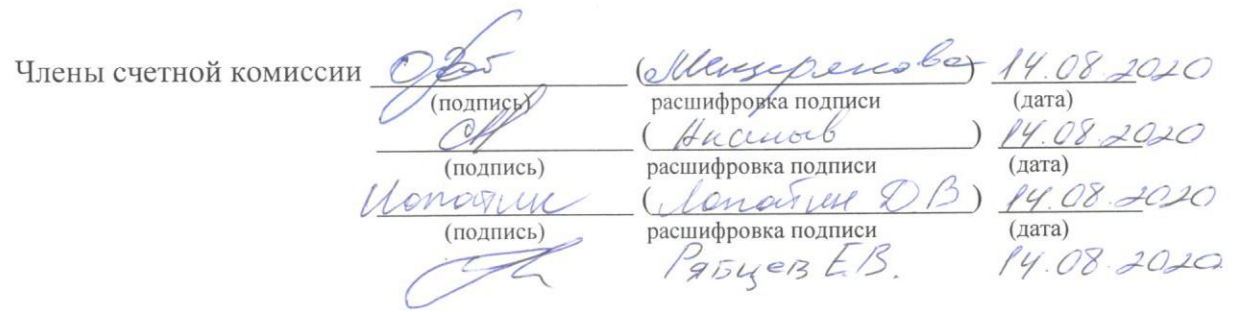 Члены счетной комиссии (Мещерякова) 14.08.2020
(подпись) расшифровка подписи (дата)
( ) 14.08.2020
(подпись) расшифровка подписи (дата)
Лопатин (Лопатин Д В) 14.08.2020
(подпись) расшифровка подписи (дата)
Рябцев Е.В. 14.08.2020